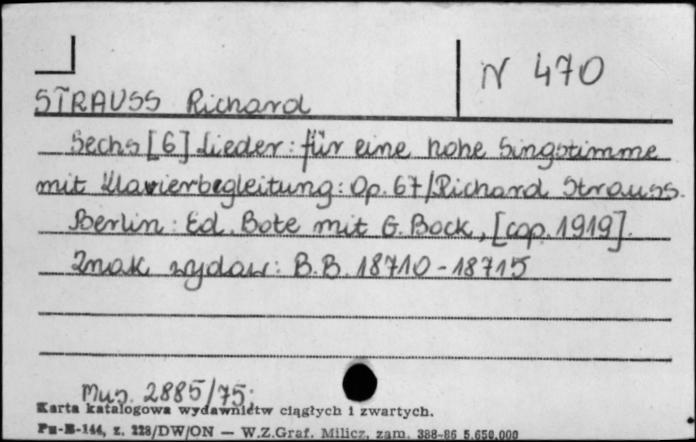 N 470
STRAUSS Richard
Sechs [6] Lieder: für eine hohe Singstimme
mit Klavierbegleitung: Op. 67/Richard Strauss.
Berlin: Ed. Bote mit G. Bock, [cop. 1919].
Znak wydaw: B.B. 18710-18715
Mus. 2885/75;
Karta katalogowa wydawnictw ciągłych i zwartych.
Pu-B-144, z. 228/DW/ON — W.Z.Graf. Milicz, zam. 388-86 5.650.000